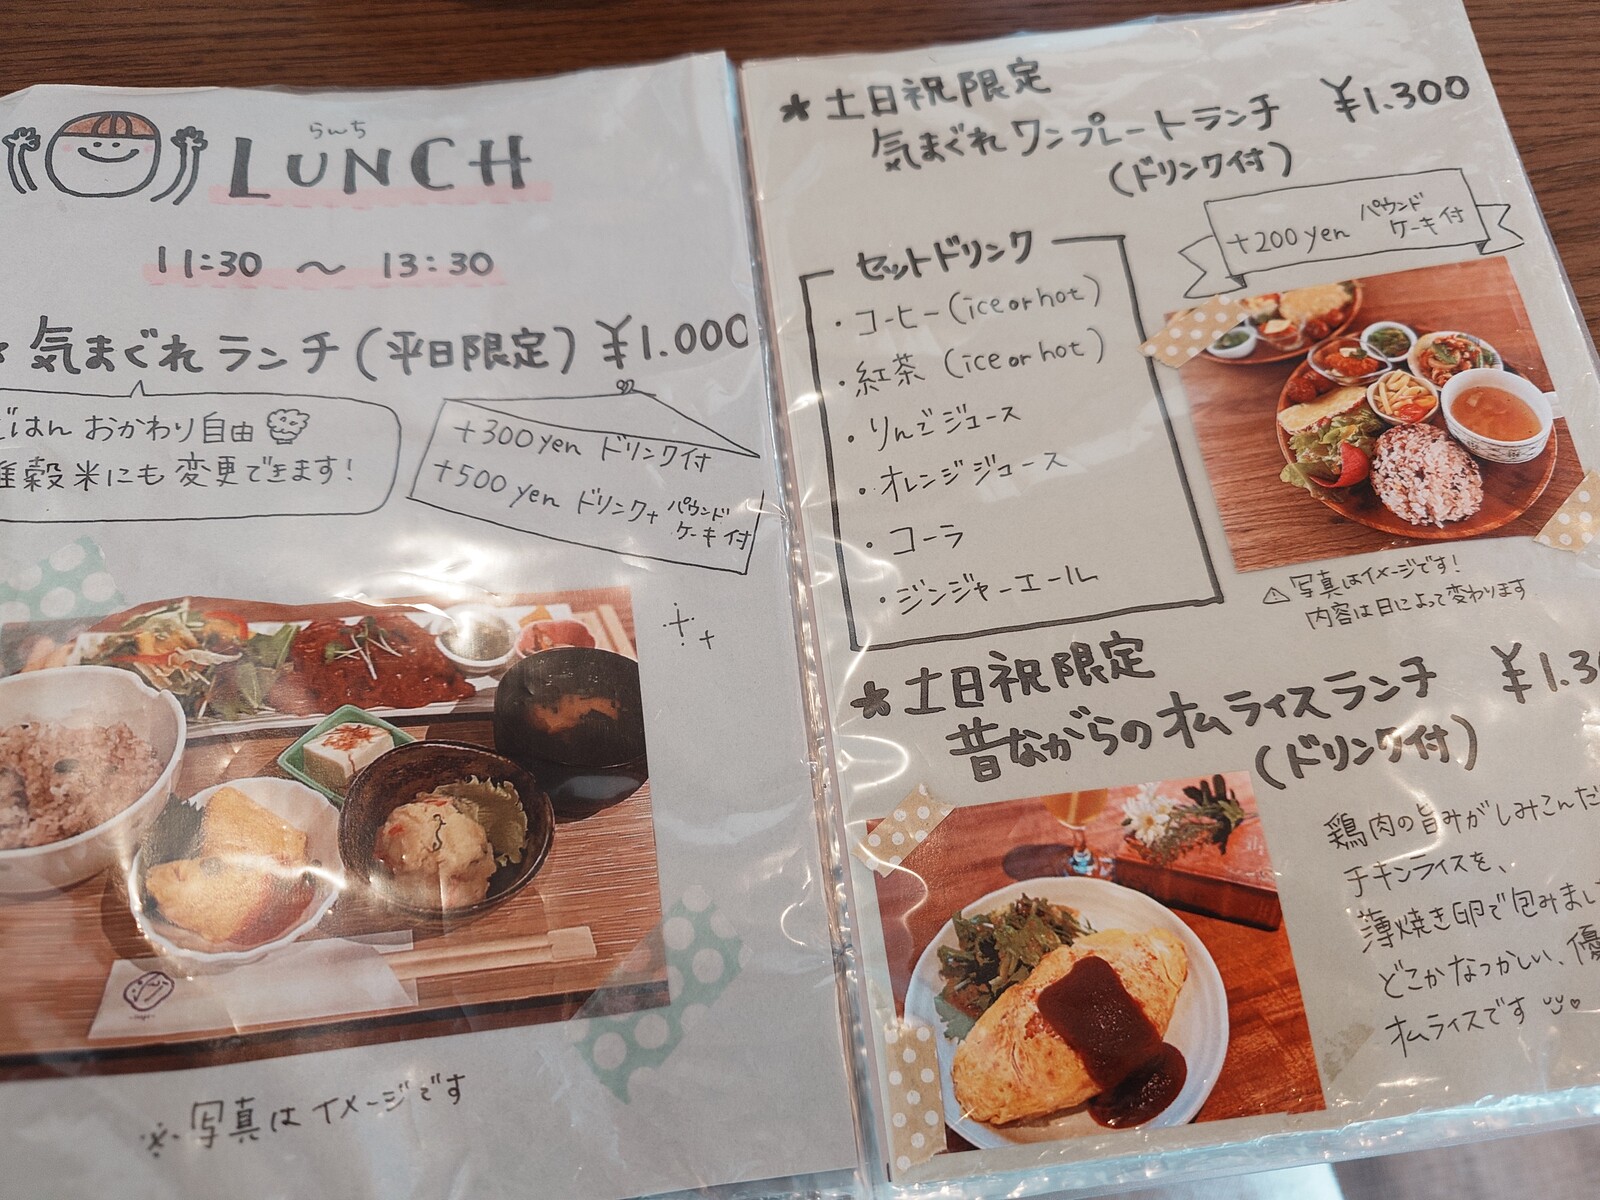 らんち
LUNCH
11:30 ～ 13:30
気まぐれランチ(平日限定) ¥1.000
ごはん おかわり自由
雑穀米にも変更できます!
+300yen ドリンク付
+500yen ドリンク+ パウンドケーキ付
※写真はイメージです
★土日祝限定
気まぐれワンプレートランチ ¥1.300
(ドリンク付)
+200yen パウンドケーキ付
セットドリンク
・コーヒー(ice or hot)
・紅茶 (ice or hot)
・りんごジュース
・オレンジジュース
・コーラ
・ジンジャーエール
⚠写真はイメージです!
内容は日によって変わります
★土日祝限定
昔ながらのオムライスランチ ¥1.3
(ドリンク付)
鶏肉の旨みがしみこんだ
チキンライスを、
薄焼き卵で包みまし
どこかなつかしい、優
オムライスです